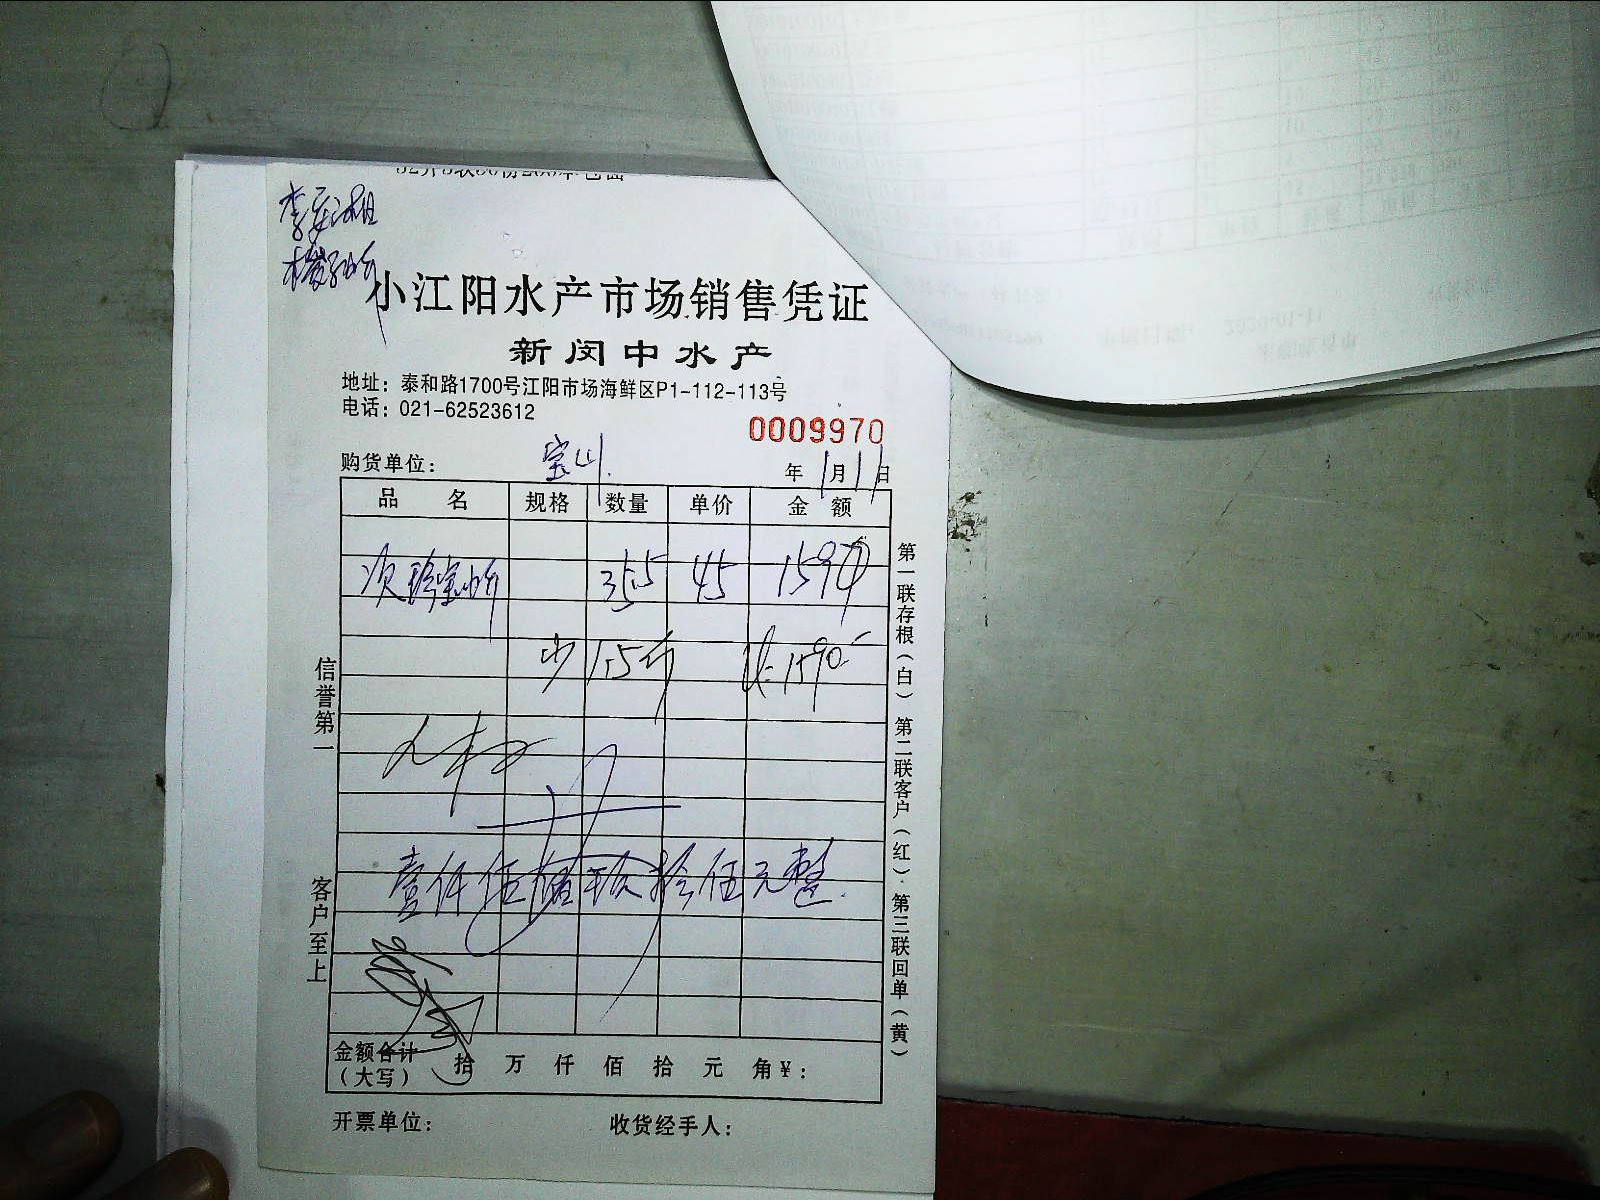 小江阳水产市场销售凭证
新闵中水产
地址：泰和路1700号江阳市场海鲜区P1-112-113号
电话：021-62523612
0009970
购货单位： 宝山
年 1月11日
品 名 规格 数量 单价 金 额
35.5 45 1597
少 1.5斤 1590.-
壹仟伍佰玖拾伍元整.
金额合计（大写） 拾 万 仟 佰 拾 元 角￥：
开票单位： 收货经手人：
信誉第一 客户至上
第一联存根（白）．第二联客户（红）．第三联回单（黄）